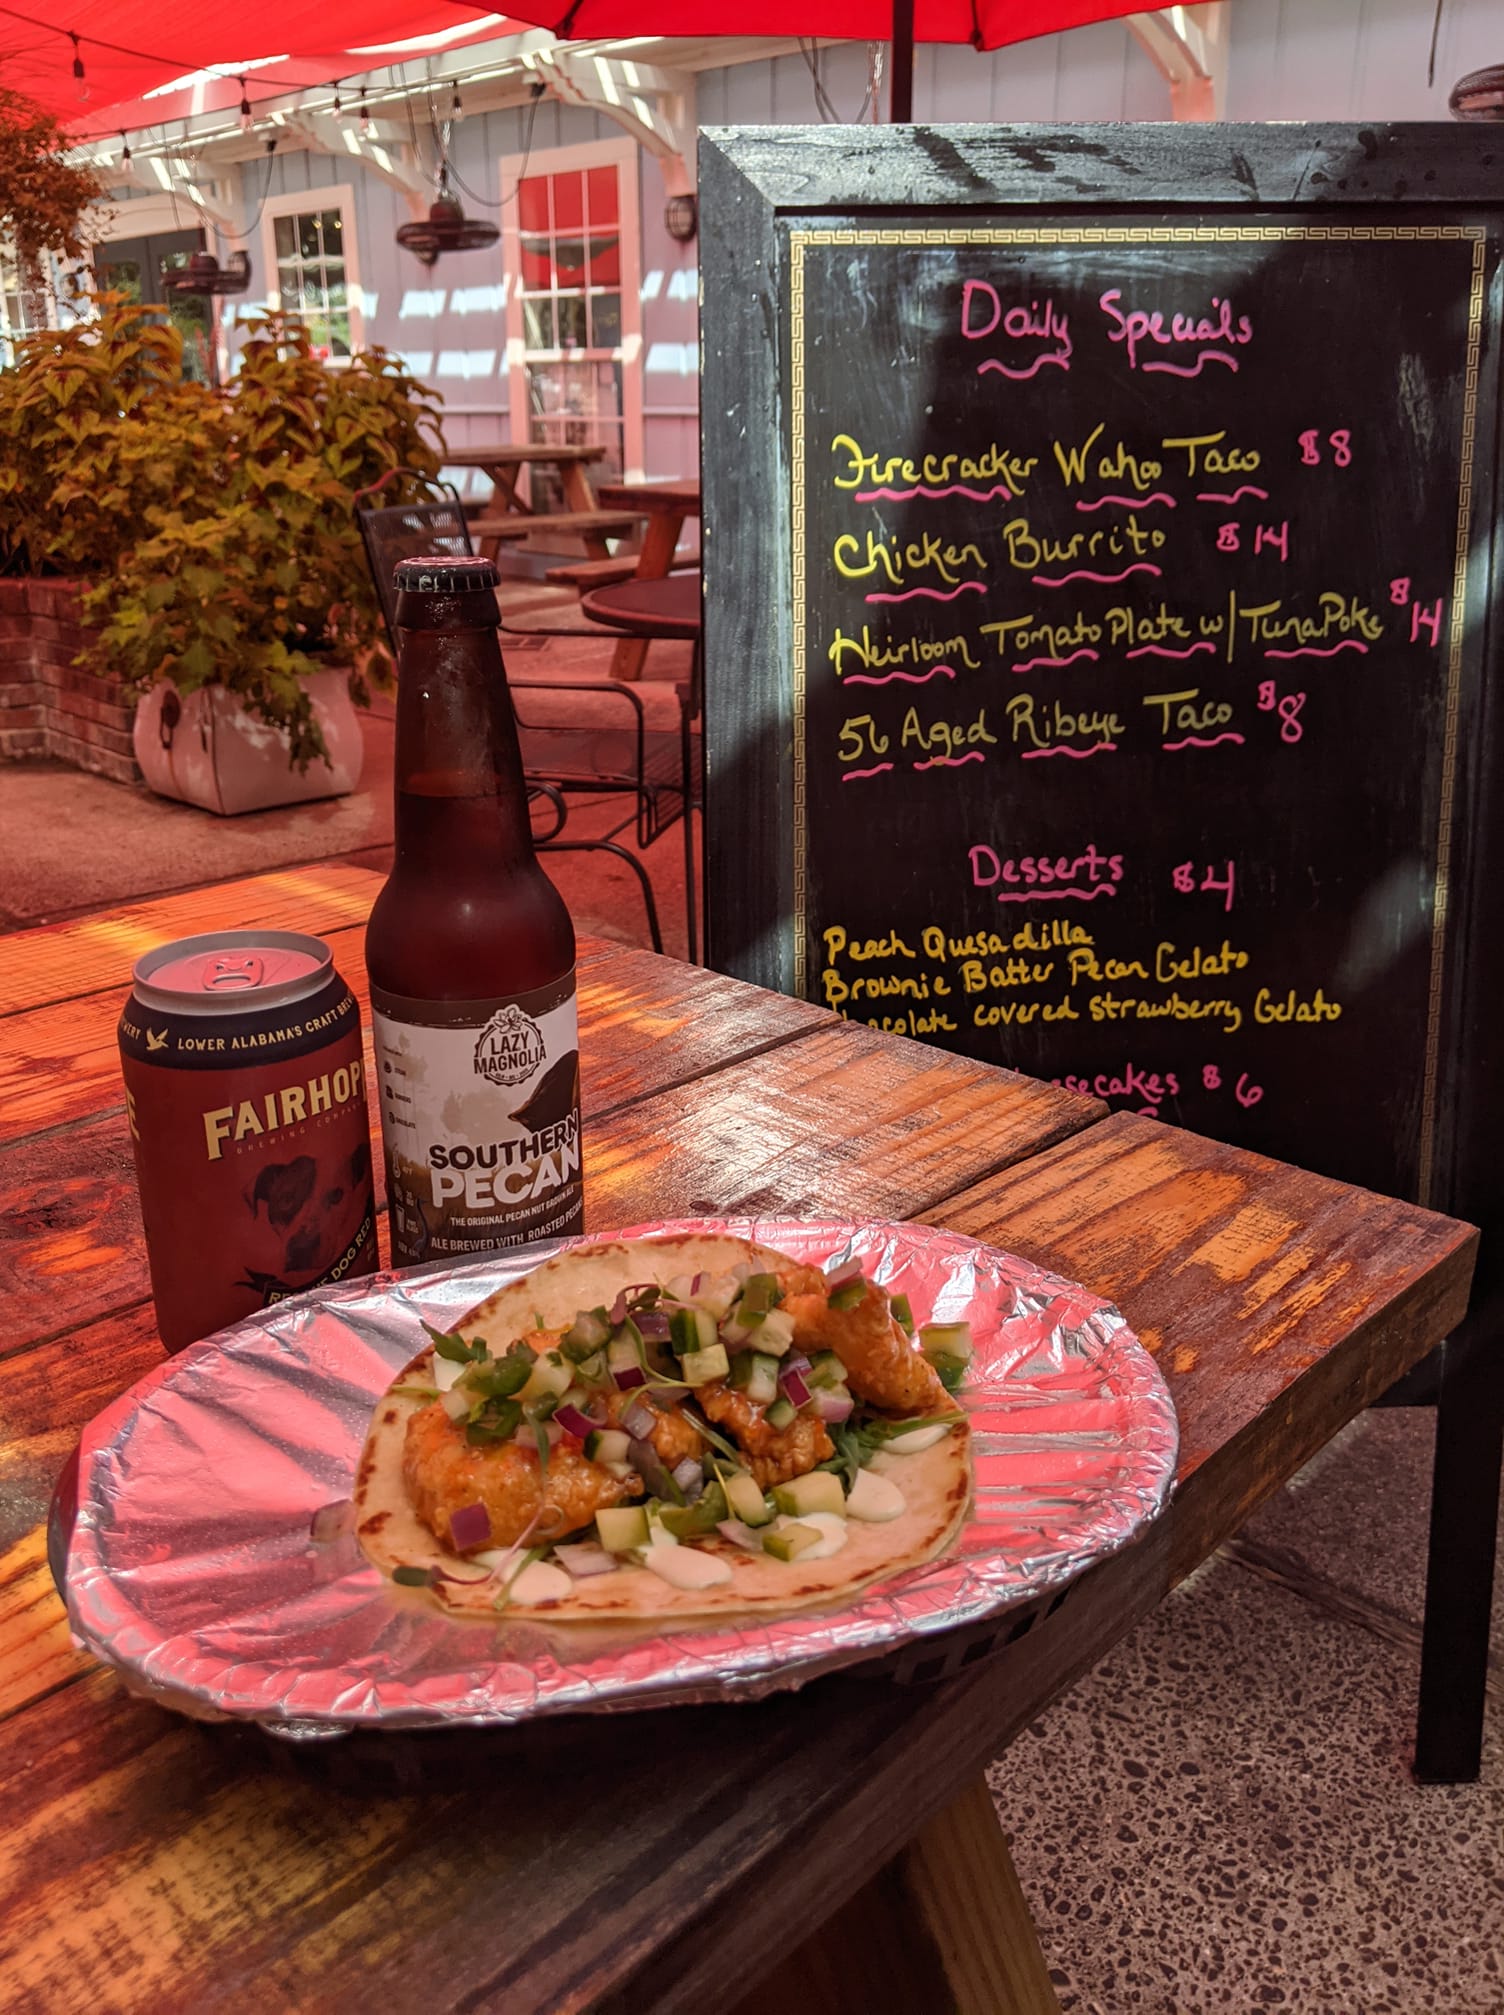 Daily Specials
Firecracker Wahoo Taco $8
Chicken Burrito $14
Heirloom Tomato Plate w/ Tuna Poke $14
56 Aged Ribeye Taco $8
Desserts $4
Peach Quesadilla
Brownie Batter Pecan Gelato
Chocolate covered strawberry Gelato
esecakes $6
LOWER ALABAMA'S CRAFT BREW
FAIRHOP
BREWING COMPA
DOG RED
LAZY
MAGNOLIA
SOUTHERN
PECAN
THE ORIGINAL PECAN NUT BROWN ALE
ALE BREWED WITH ROASTED PECANS